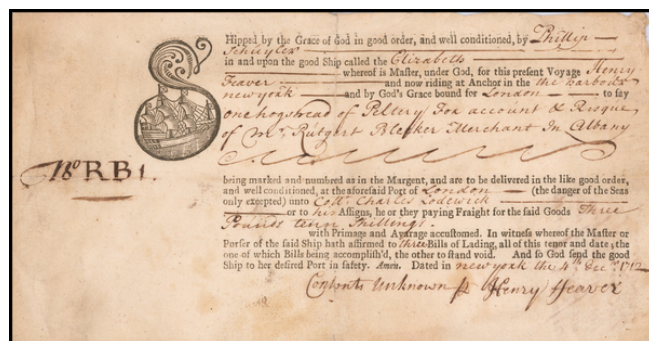 SHipped by the Grace of God in good order, and well conditioned, by Phillip
Schuyler
in and upon the good Ship called the Elizabeth
whereof is Master, under God, for this present Voyage Henry
Feaver and now riding at Anchor in the the harbour
newyork and by God's Grace bound for London to say
one hogshead of Peltery For account & Risque
of Mr. Rutgert Bleeker Merchant In Albany
No RB 1.
being marked and numbred as in the Margent, and are to be delivered in the like good order,
and well conditioned, at the aforesaid Port of London (the danger of the Seas
only excepted) unto Collo. Charles Lodewick
or to his Assigns, he or they paying Fraight for the said Goods Three
Pounds tenn Shillings.
with Primage and Avarage accustomed. In witness whereof the Master or
Purser of the said Ship hath affirmed to three Bills of Lading, all of this tenor and date; the
one of which Bills being accomplish'd, the other to stand void. And so God send the good
Ship to her desired Port in safety. Amen. Dated in newyork the 4th Decr. 1712
Contents Unknown Henry Feaver